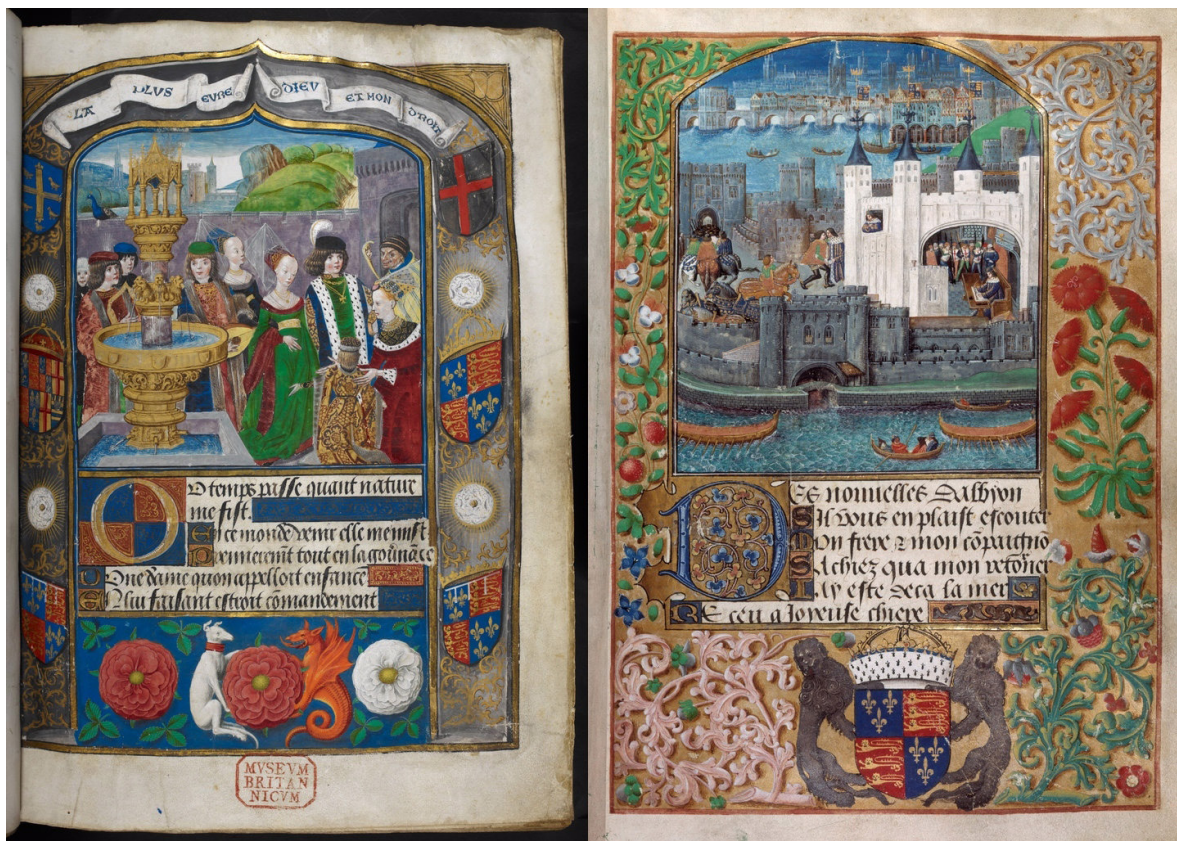 LA PLVS EVRE DIEV ET MON DROIT
Ou temps passe quant nature
me fist.
En ce monde venir elle me
tout en la
Dune dame quon appelloit enfance
En lui faisant estroit cōmandement
MVSEVM
BRITAN
NICVM
Des nouuelles Dalbyon
Sil vous en plaist escouter
Mon frere & mon cōpaignō
Sachiez qua mon retōner
Jay este deca la mer
Receu a Joyeuse chiere